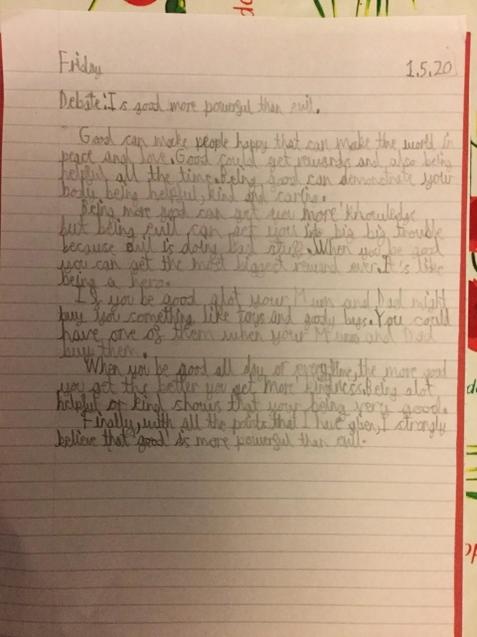 Friday 1.5.20
Debate: Is good more powerful than evil.
Good can make people happy that can make the world in
peace and love. Good could get rewards and also being
helpful all the time. Being good can demonstrate your
body being helpful, kind and caring.
Being more good can get you more knowledge
but being evill can get you into big big trouble
because evil is doing bad stuff. When you be good
you can get the most biggest reward ever. It's like
being a hero.
If you be good alot your Mum and Dad might
buy you something like toys and gody bags. You could
have one of them when your Mum and Dad
buy them.
When you be good all day or everytime, the more good
you get the better you get more kindness. Being alot
helpful or kind shows that your being very good.
Finally, with all the points that I have given, I strongly
believe that good is more powerful than evil.